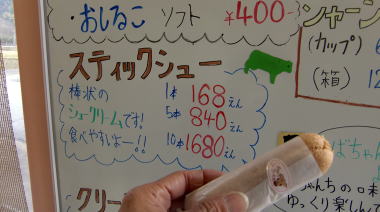 ・おしるこ ソフト ¥400
スティックシュー
棒状の
シュークリームです!
食べやすいよー!!
1本 168えん
5本 840えん
10本 1680えん
シャーン
(カップ) 6
(箱) 12
ばちゃん
ゆっくり楽しんで
クリー